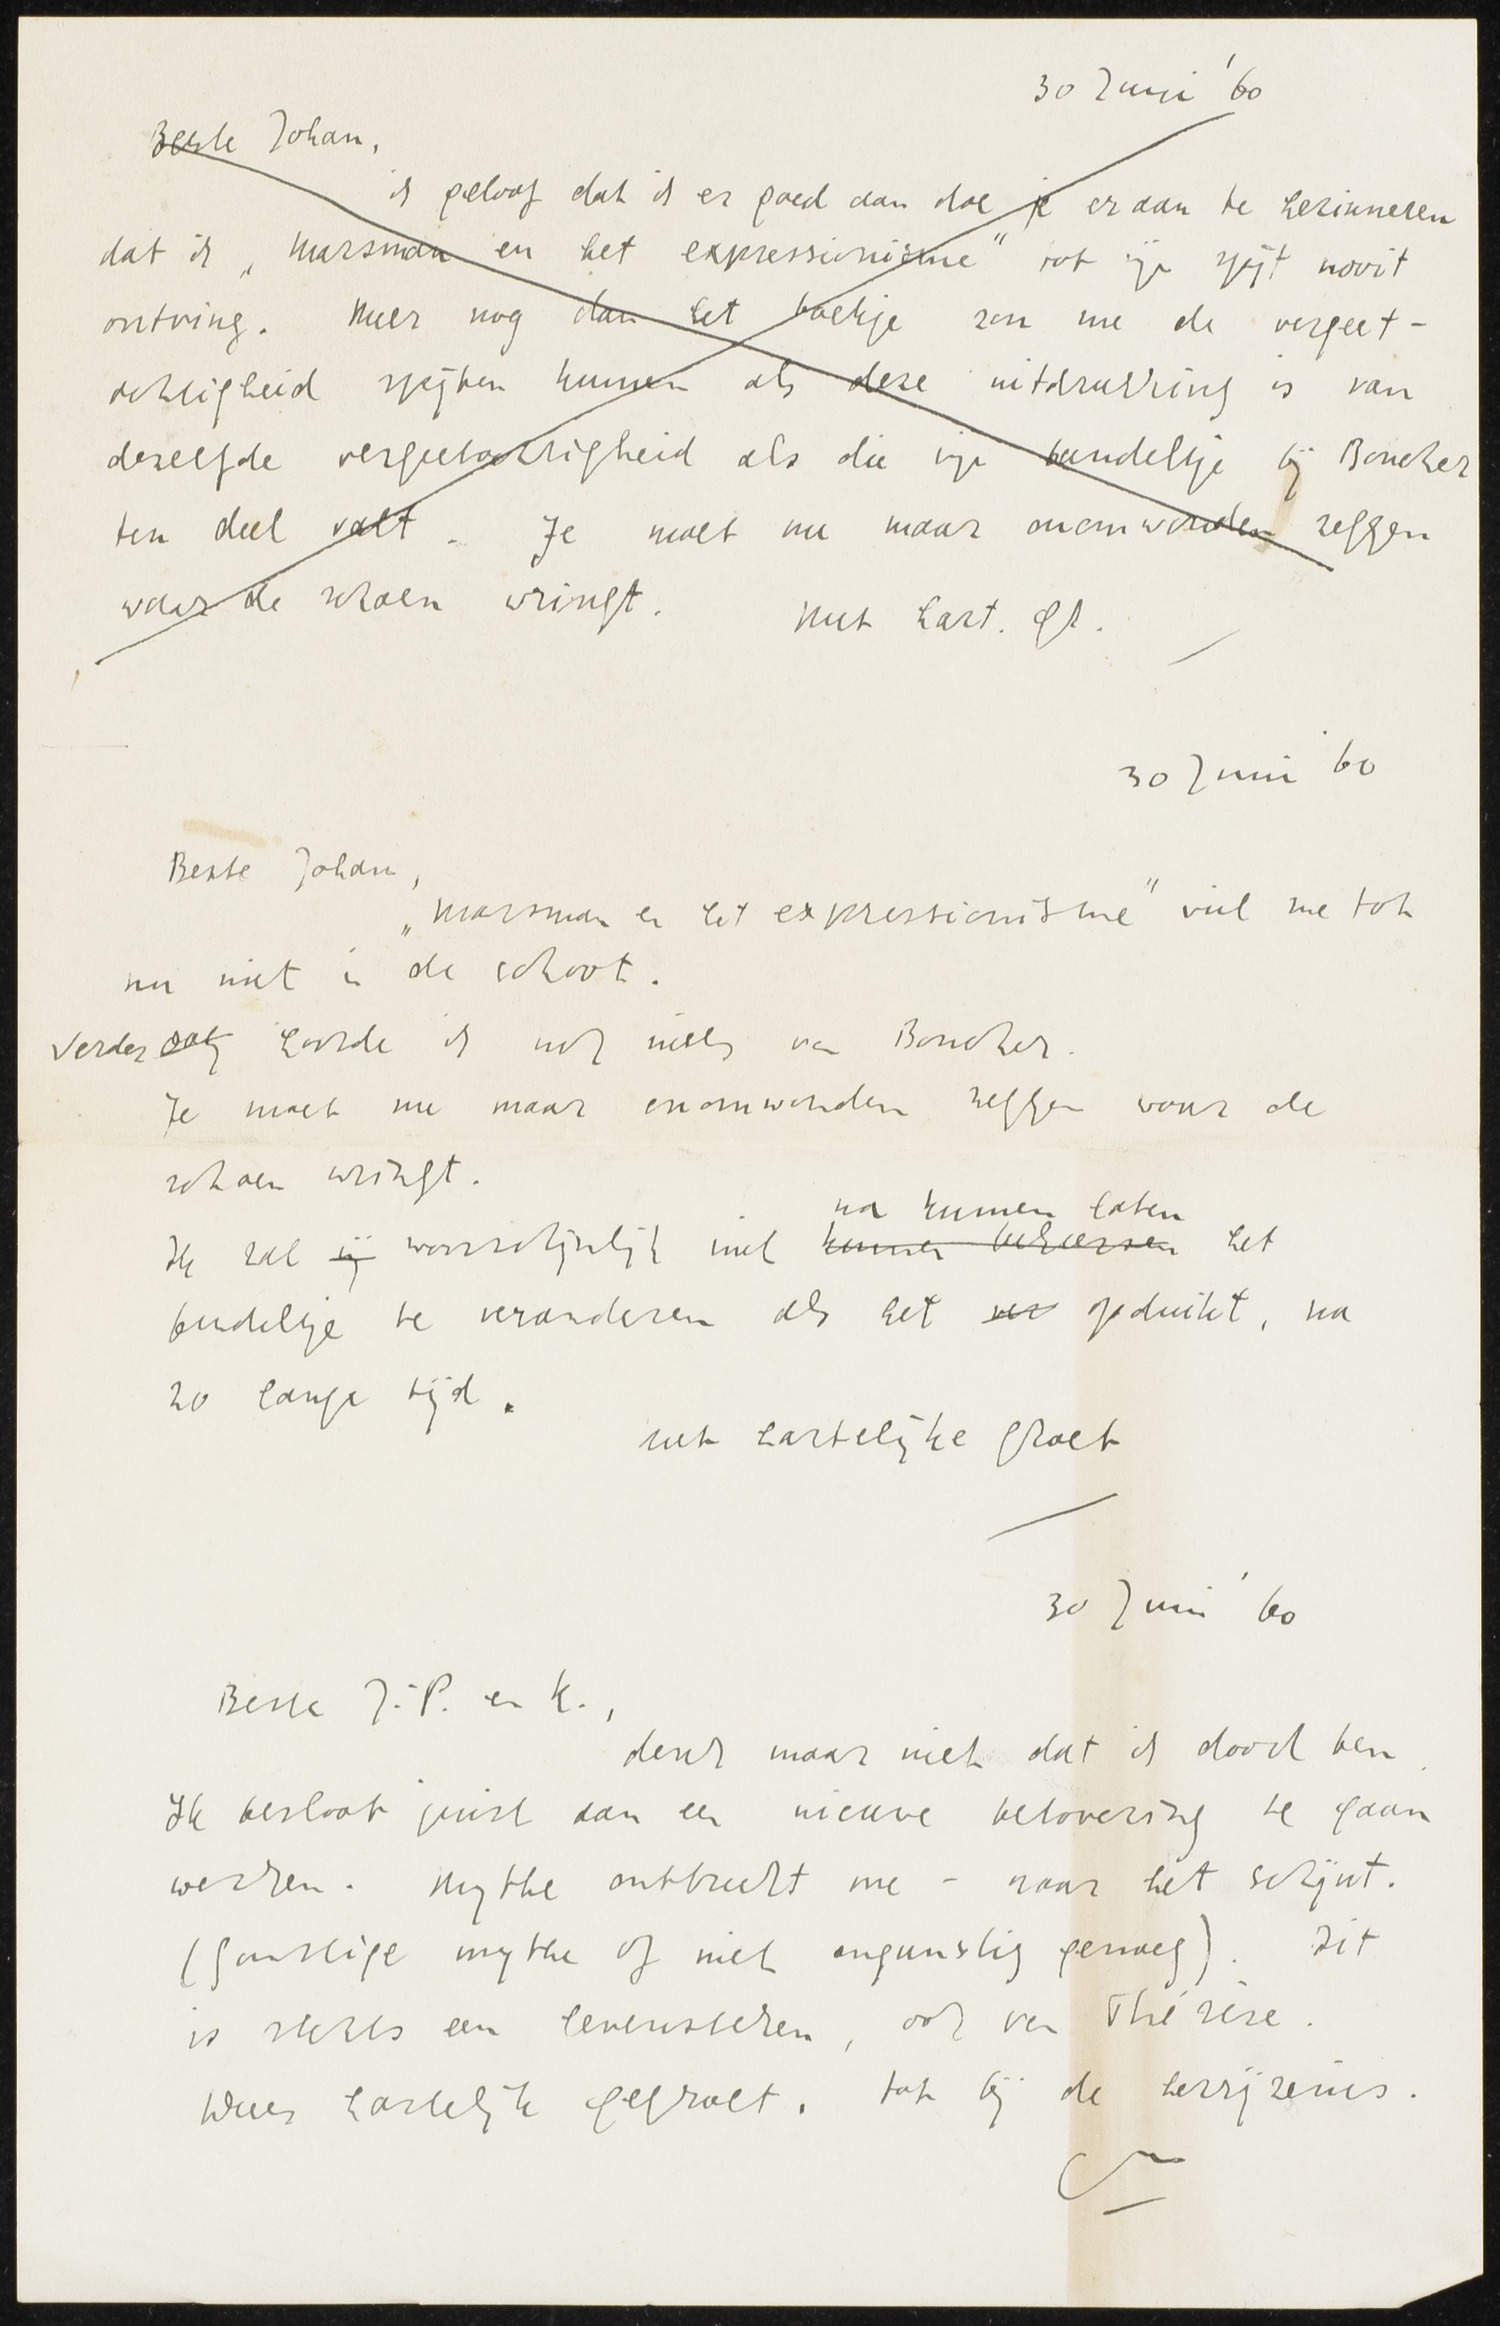 30 Juni '60
Beste Johan,
ik geloof dat ik er goed aan doe je eraan te herinneren
dat ik „Marsman en het expressionisme" tot mijn spijt nooit
ontving. Meer nog dan het boekje zou me de vergeet-
achtigheid spijten kunnen als deze uitdrukking is van
dezelfde vergeetachtigheid als die mijn bundeltje bij Boucher
ten deel valt. Je moet me maar onomwonden zeggen
waar de schoen wringt. Met hart. gr.
30 Juni '60
Beste Johan,
„Marsman en het expressionisme" viel me tot
nu niet in de schoot.
Verder hoorde ik nog niets van Boucher.
Je moet me maar onomwonden zeggen waar de
schoen wringt.
na kunnen laten
Ik zal waarschijnlijk niet kunnen beheersen het
bundeltje te veranderen als het opduikt, na
zo lange tijd.
met hartelijke groet
30 Juni '60
Beste J.-P. en K.,
denk maar niet dat ik dood ben.
Ik besloot juist aan een nieuwe betovering te gaan
werken. Mythe ontbreekt me - naar het schijnt.
(gunstige mythe of niet ongunstig genoeg). Dit
is slechts een levensteken, ook van Thérèse.
Wees hartelijk gegroet. tot bij de herrijzenis.